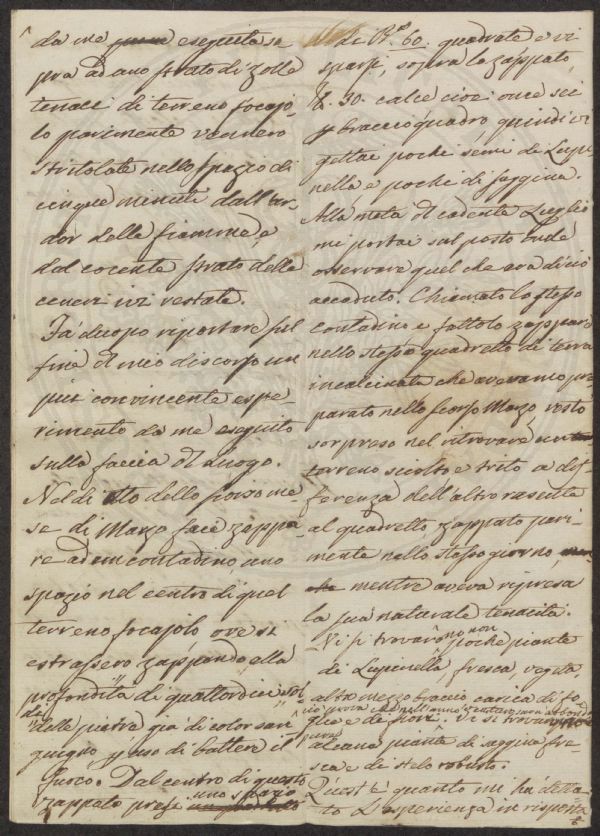 da me eseguita so
pra ad uno strato di zolle
tenaci di terreno focajo
lo parimente vennero
stritolate nello spazio di
cinque minuti dall'ar
dor delle fiamme, e
dal cocente strato delle
ceneri ivi restate.
Fa d'uopo riportare sul
fine di mio discorso un
più convincente espe
rimento da me eseguito
sulla faccia di luogo.
Nel dì otto dello scorso me
se di Marzo feci zappa
re ad un contadino uno
spazio nel centro di quel
terreno focajolo ove si
estrassero zappando alla
profondità di quattordici soldi
delle pietre già di color san
guigno p uso di battere il
fuoco. Dal centro di questo
zappato presi uno spazio
di B.a 60. quadrate e vi
sparsi, sopra lo zappato,
℔. 30. calce cioè once sei
p braccio quadro, quindi vi
gettai pochi semi di Lupi
nella e pochi di saggina.
Alla metà di cadente Luglio
mi portai sul posto onde
osservare quel che era di ciò
accaduto. Chiamato lo stesso
contadino e fattolo zappare
nello stesso quadretto di terra
incalcinata che avevamo pre
parato nello scorso Marzo restò
sorpreso nel ritrovare un
terreno sciolto e trito a dif
ferenza dell'altro rasente
al quadretto zappato pari
mente nello stesso giorno,
mentre aveva ripresa
la sua naturale tenacità.
Vi si trovarono non poche piante
di Lupinella, fresca, vegeta,
alta mezzo braccio carica di fo
glie e de fiori. Vi si trovarono
pure
alcune piante di saggina fre
sca e di stelo robusto.
Quest'è quanto mi ha detta
to l'esperienza in risposta